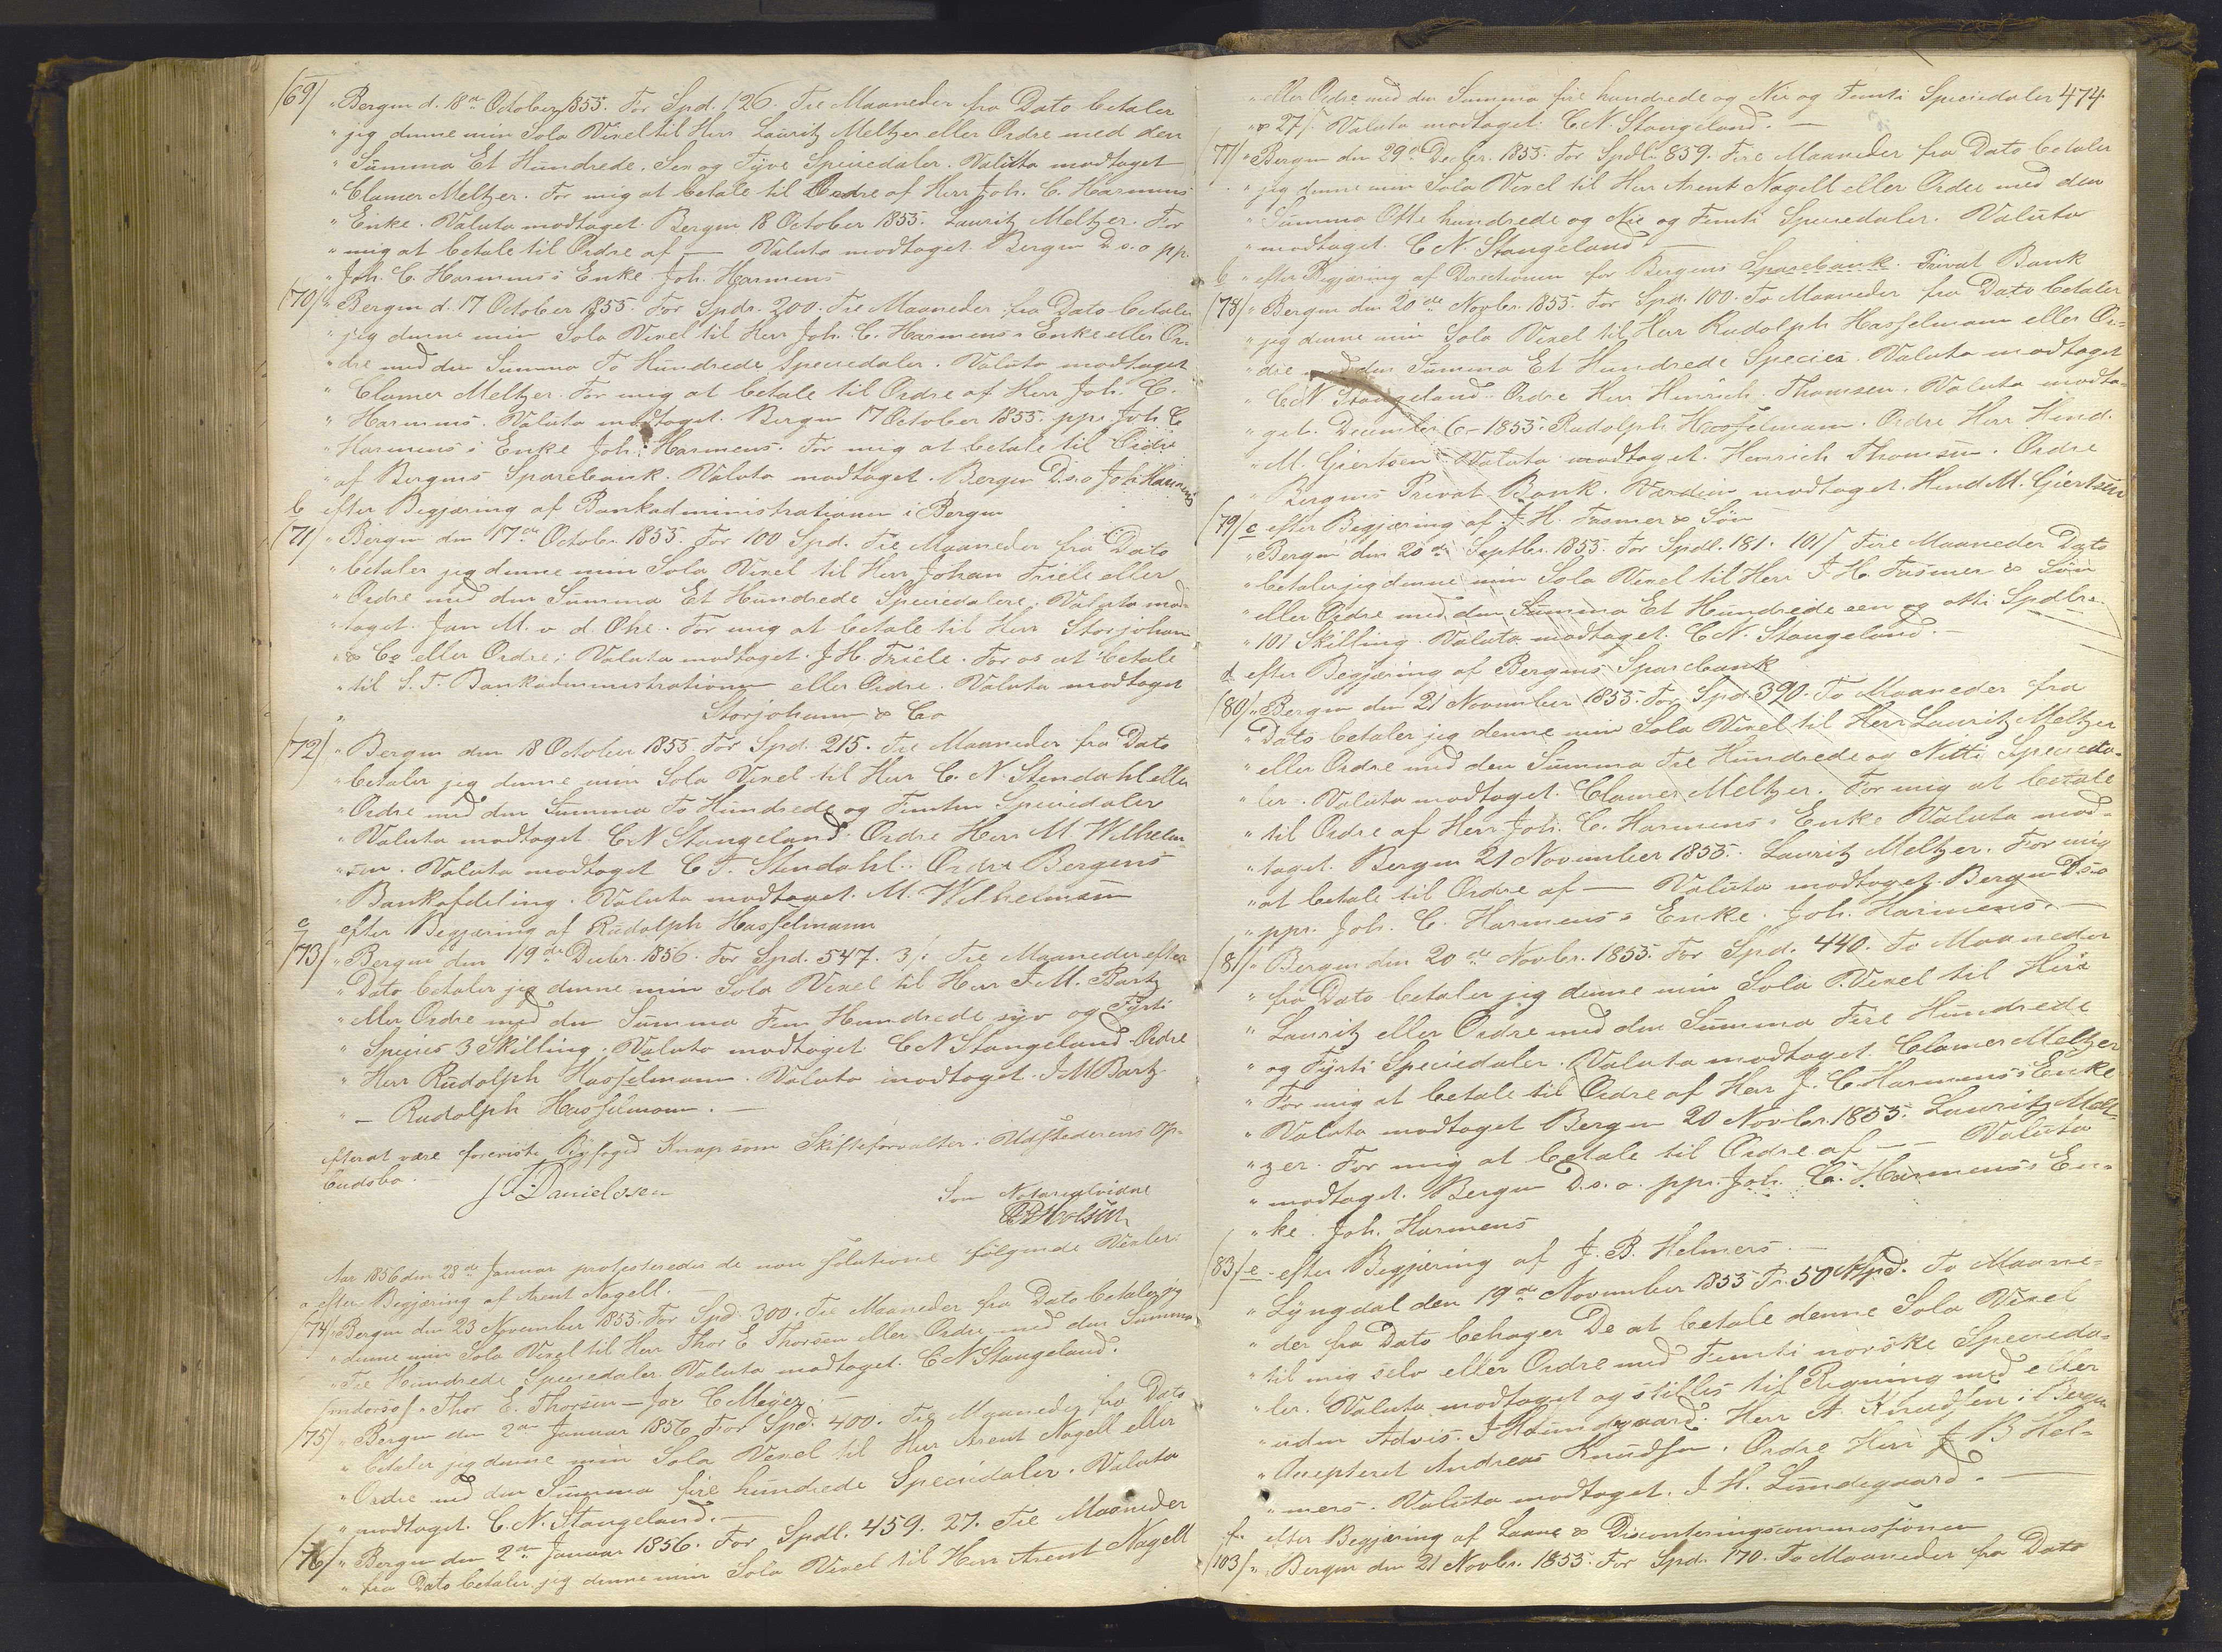 69/ "Bergen d. 18de October 1855. For Spd. 126. Tre Maaneder fra Dato betaler
" jeg denne min Sola Vexel til Herr Lauritz Meltzer eller Ordre med den
" Summa Et Hundrede, Sex og Tyve Speciedaler. Valuta modtaget
" Clamer Meltzer. For mig at betale til Ordre af Herr Joh. C. Harmens
" Enke. Valuta modtaget. Bergen 18 October 1855. Lauritz Meltzer. For
" mig at betale til Ordre af — Valuta modtaget. Bergen D.s.o pp.
" Joh. C. Harmens's Enke Joh. Harmens
70/ " Bergen d. 17 October 1855. For Spdr. 200. Tre Maaneder fra Dato betaler
" jeg denne min Sola Vexel til Herr Joh. C. Harmens's Enke eller Or-
" dre med den Summa To Hundrede Speciedaler. Valuta modtaget
" Clamer Meltzer. For mig at betale til Ordre af Herr Joh. C.
" Harmens. Valuta modtaget. Bergen 17 October 1855. ppr. Joh. C
" Harmens's Enke Joh. Harmens. For mig at betale til Ordre
" af Bergens Sparebank. Valuta modtaget. Bergen D.s.o Joh. Harmens
b efter Begjæring af Bankadministrationen i Bergen
71/ " Bergen den 17de October 1855. For 100 Spd. Tre Maaneder fra Dato
" betaler jeg denne min Sola Vexel til Herr Johan Friele eller
" Ordre med den Summa Et Hundrede Speciedalere. Valuta mod-
" taget. Jan M. v. d. Ohe. For mig at betale til Herr Storjohann
" & Co eller Ordre; Valuta modtaget. J H Friele. For os at betale
" til S. T. Bankadministrationen eller Ordre. Valuta modtaget
" Storjohann & Co
72/ " Bergen den 18 October 1855 For Spd. 215. Tre Maaneder fra Dato
" betaler jeg denne min Sola Vexel til Herr C. N. Stendahl eller
" Ordre med den Summa To Hundrede og Femten Speciedaler
" Valuta modtaget C N Stangeland. Ordre Herr M. Wilhelm-
" sen. Valuta modtaget C. T. Stendahl. Ordre Bergens
" Bankafdeling. Valuta modtaget. M. Wilhelmsen
c efter Begjæring af Rudolph Hasselmann
73/ " Bergen den 19de Decbr. 1856. For Spd. 547. 3/. Tre Maaneder efter
" Dato betaler jeg denne min Sola Vexel til Herr J. M. Bartz
" eller Ordre med den Summa Fem Hundrede syv og Fyrti
" Species 3 Skilling. Valuta modtaget. C N Stangeland. Ordre
" Herr Rudolph Hasselmann. Valuta modtaget. J M Bartz
" — Rudolph Hasselmann. —
efterat være foreviste Byfoged Knap som Skifteforvalter i Udstederens Op-
budsbo. —
J F Danielssen Som Notarialvidne
Aar 1856 den 28de Januar protesteredes de non solutione følgende Vexler:
a efter Begjæring af Arent Nagell. —
74/ " Bergen den 23 November 1855. For Spd. 300. Tre Maaneder fra Dato betaler jeg
" denne min Sola Vexel til Herr Thor E Thorsen eller Ordre med den Summa
" Tre Hundrede Speciedaler. Valuta modtaget. C N Stangeland.
/indorso/ " Thor E. Thorsen — Jor C Meyer. —
75/ " Bergen den 2den Januar 1856. For Spd. 400. Tre Maaneder fra Dato
" betaler jeg denne min Sola Vexel til Herr Arent Nagell eller
" Ordre med den Summa fire hundrede Speciedaler. Valuta
" modtaget. C. N. Stangeland. —
76/ " Bergen den 2den Januar 1856. For Spdl. 459. 27. Tre Maaneder
" fra Dato betaler jeg denne min Sola Vexel til Herr Arent Nagell
" eller Ordre med den Summa fire hundrede og Nie og Femti Speciedaler 474.
" & 27/. Valuta modtaget. C N. Stangeland. —
77/ " Bergen den 29de Decbr. 1855. For Spdl. 859. Fire Maaneder fra Dato betaler
" jeg denne min Sola Vexel til Herr Arent Nagell eller Ordre med den
" Summa Otte hundrede og Nie og Femti Speciedaler. Valuta
" modtaget. C N. Stangeland —
b " efter Begjæring af Directionen for Bergens Sparebank Privat Bank
78/ " Bergen den 20de Novbr. 1855. For Spd. 100. To Maaneder fra Dato betaler
" jeg denne min Sola Vexel til Herr Rudolph Hasselmann eller Or-
" dre med den Summa Et Hundrede Species. Valuta modtaget
" C N Stangeland. Ordre Herr Hinrich Thomsen. Valuta modta-
" get. December 6 - 1855. Rudolph Hasselmann. Ordre Herr Hend.
" M. Giertsen. Valuta modtaget. Henrich Thomsen. Ordre
" Bergens Privat Bank. Værdien modtaget. Hend M. Giertsen
79/ c efter Begjæring af J. H. Fasmer & Søn
" Bergen den 20de Septbr. 1855. For Spdl. 181. 101/ Fire Maaneder Dato
" betaler jeg denne min Sola Vexel til Herr J. H. Fasmer & Søn
" eller Ordre med den Summa Et Hundrede een og otti Spdlr.
" 101 Skilling. Valuta modtaget. C N. Stangeland. —
d efter Begjæring af Bergens Sparebank
80/ " Bergen den 21 November 1855. For Spd 390. To Maaneder fra
" Dato betaler jeg denne min Sola Vexel til Herr Lauritz Meltzer
" eller Ordre med den Summa Tre Hundrede og Nitti Specieda-
" ler. Valuta modtaget. Clamer Meltzer. For mig at betale
" til Ordre af Herr Joh. C. Harmens's Enke Valuta mod-
" taget. Bergen 21 November 1855. Lauritz Meltzer. For mig
" at betale til Ordre af — Valuta modtaget. Bergen D.s.o
" ppr. Joh. C. Harmens's Enke. Joh. Harmens. —
81/ " Bergen den 20de Novbr. 1855. For Spd. 440. To Maaneder
" fra Dato betaler jeg denne min Sola Vexel til Herr
" Lauritz eller Ordre med den Summa Fire Hundrede
" og Fyrti Speciedaler. Valuta modtaget. Clamer Meltzer
" For mig at betale til Ordre af Herr J. C. Harmens's Enke
" Valuta modtaget Bergen 20 Novbr. 1855. Lauritz Melt-
" zer. For mig at betale til Ordre af — — Valuta
" modtaget. Bergen D.s.o. ppr. Joh. C. Harmens's En-
" ke. Joh. Harmens
83/ e. efter Begjæring af J. B. Helmers. —
" Lyngdal den 19de November 1855 Pr. 50 Spd. To Maane-
" der fra Dato behager De at betale denne Sola Vexel
" til mig selv eller Ordre med Femti norske Specieda-
" ler. Valuta modtaget og stilles til Regning med eller
" uden Advis. J H Lundegaard. Herr A. Knudsen i Bergen
" Accepteret Andreas Knudsen. Ordre Herr J. B Hel-
" mers. Valuta modtaget. J. H. Lundegaard. —
f. efter Begjæring af Laane & Disconteringscommissionen
103/ " Bergen den 21 Novbr. 1855. For Spd. 170. To Maaneder fra Dato